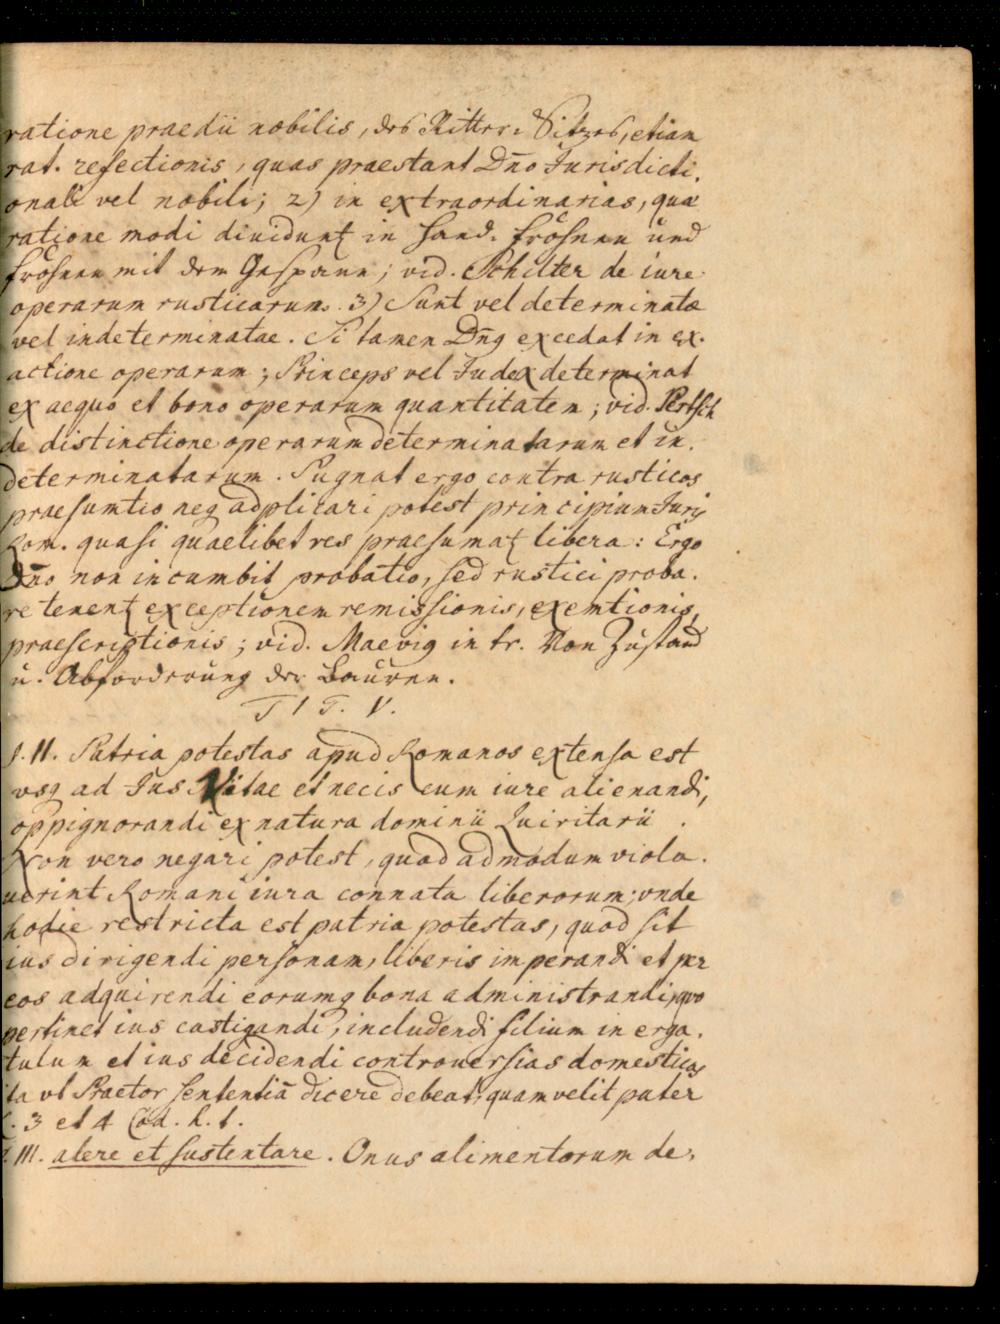 ratione praedii nobilis, des Ritter-Sitzes, etiam
rat. refectionis, quas praestant Dño Jurisdicti-
onali vel nobili; 2) in extraordinarias, quae
ratione modi diuidunt in Hand-Fröhnen und
Fröhnen mit dem Gespann; vid. Schilter de iure
operarum rusticarum. 3) Sunt vel determinatae
vel indeterminatae. Si tamen Dñg excedat in ex-
actione operarum; Princeps vel Judex determinat
ex aequo et bono operarum quantitatem; vid. Pertsch
de distinctione operarum determinatarum et in-
determinatarum. Pugnat ergo contra rusticos
praesumtio neq adplicari potest principium Juris
Rom. quasi quaelibet res praesumat libera: Ergo
Dño non incumbit probatio, sed rustici proba-
re tenent exceptionem remissionis, exemtionis,
praescriptionis; vid. Maevig in tr. Von Zustand
u. Abforderung der Bauren.
TIT. V.
§. II. Patria potestas apud Romanos extensa est
vsq ad Jus Vitae et necis cum iure alienandi,
oppignorandi ex natura dominii Quiritarii.
Non vero negari potest, quod admodum viola-
uerint Romani iura connata liberorum; vnde
hodie restricta est patria potestas, quod sit
ius dirigendi personam, liberis imperandi et per
eos adquirendi eorumq bona administrandi, quo
pertinet ius castigandi, includendi filium in erga-
tulum et ius decidendi controuersias domesticas
ita vt Praetor sententiā dicere debeat, quam velit pater
C. 3 et 4 Cod. h. t.
§. III. alere et sustentare. Onus alimentorum de-